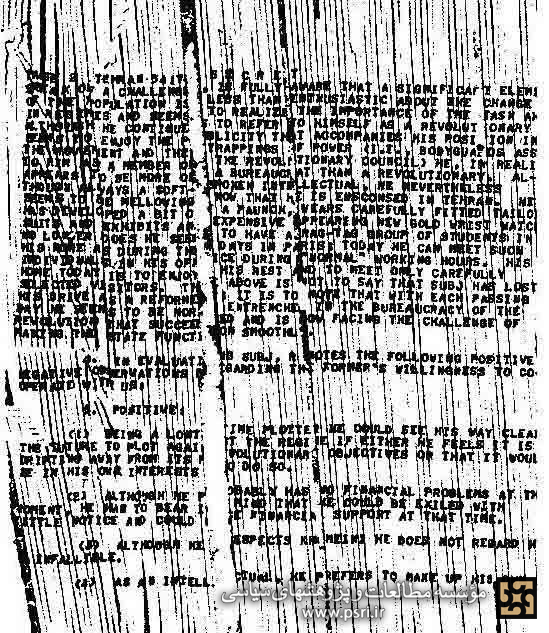 PAGE 2 TEHRAN 5417 S E C R E T
OF A CHALLENGE. IS FULLY AWARE THAT A SIGNIFICANT ELEM
OF THE POPULATION IS LESS THAN ENTHUSIASTIC ABOUT THE CHANGE
IN AND SEEMS TO REALIZE THE IMPORTANCE OF THE TASK
ALTHOUGH HE CONTINUE TO REFER TO HIMSELF AS A REVOLUTIONARY
ENJOY THE P BLICITY THAT ACCOMPANIES HIS POSITION IN
THE MOVEMENT AND THE TRAPPINGS OF POWER (I.E., BODYGUARDS ASS
TO HIM AS A MEMBER OF THE REVOLUTIONARY COUNCIL) HE, IN REALI
APPEARS TO BE MORE OF A BUREAUCRAT THAN A REVOLUTIONARY. AL-
THOUGH ALWAYS A SOFT- SPOKEN INTELLECTUAL, HE NEVERTHELESS
SEEMS TO BE MELLOWING NOW THAT HE IS ENSCONSED IN TEHRAN. HE
HAS DEVELOPED A BIT OF A PAUNCH, WEARS CAREFULLY FITTED TAILO
SUITS AND EXHIBITS AN EXPENSIVE APPEARING NEW GOLD WRIST WATC
NO LONGER DOES HE SEEM TO HAVE A RAG-TAG GROUP OF STUDENTS IN
HIS HOME AS DURING HIS DAYS IN PARIS; TODAY HE CAN MEET SUCH
INDIVIDUALS AT HIS OFFICE DURING "NORMAL" WORKING HOURS. HIS
HOME TODAY IS TO ENJOY HIS REST AND TO MEET ONLY CAREFULLY
SELECTED VISITORS. THE ABOVE IS NOT TO SAY THAT SUBJ HAS LOST
HIS DRIVE AS A REFORME IT IS TO NOTE THAT WITH EACH PASSING
DAY HE SEEMS TO BE MOR ENTRENCHED IN THE BUREAUCRACY OF THE
REVOLUTION THAT SUCCEE ED AND IS NOW FACING THE CHALLENGE OF
MAKING THE STATE FUNCTI ON SMOOTHL
4. IN EVALUATING SUBJ, NOTES THE FOLLOWING POSITIVE
NEGATIVE OBSERVATIONS REGARDING THE FORMER'S WILLINGNESS TO CO-
OPERATE WITH US:
A. POSITIVE:
(1) BEING A LONG TIME PLOTTER HE COULD SEE HIS WAY CLEA
THE FUTURE TO PLOT AGAINST THE REGIME IF EITHER HE FEELS IT IS
DRIFTING AWAY FROM ITS REVOLUTIONARY OBJECTIVES OR THAT IT WOUL
BE IN HIS OWN INTERESTS TO DO SO.
(2) ALTHOUGH HE PROBABLY HAS NO FINANCIAL PROBLEMS AT TH
MOMENT, HE HAS TO BEAR IN MIND THAT HE COULD BE EXILED WITH
LITTLE NOTICE AND COULD FINANCIAL SUPPORT AT THAT TIME.
(3) ALTHOUGH HE RESPECTS KHOMEINI HE DOES NOT REGARD H
INFALLIBLE.
(4) AS AN INTELLECTUAL, HE PREFERS TO MAKE UP HIS
مؤسسه مطالعات و پژوهشهای سیاسی
www.psri.ir